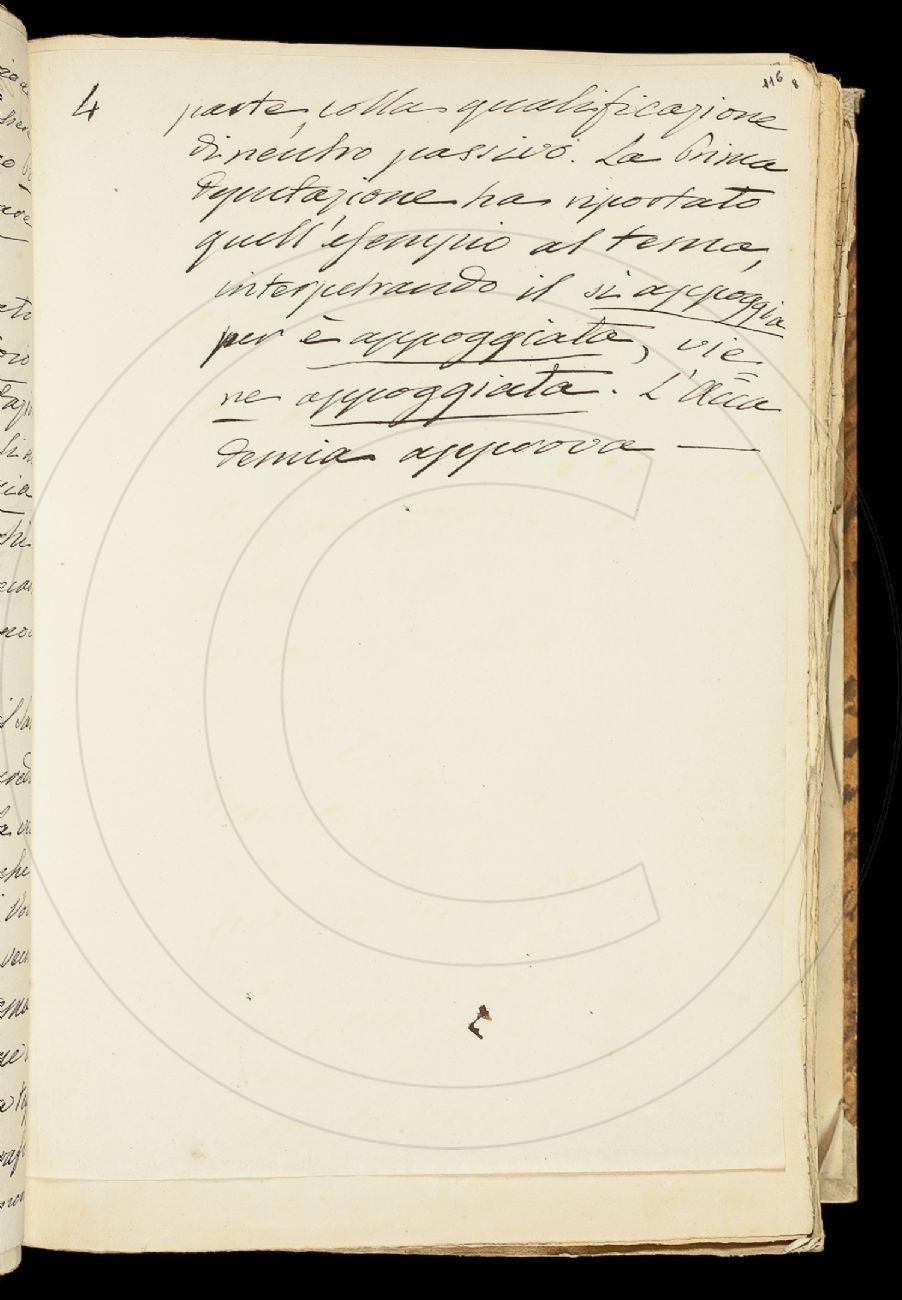 116
4
parte, colla qualificazione
di neutro passivo. La Prima
Deputazione ha riportato
quell'esempio al tema,
interpetrando il si appoggia
per è appoggiata, vie=
ne appoggiata. L'Acca=
demia approva —